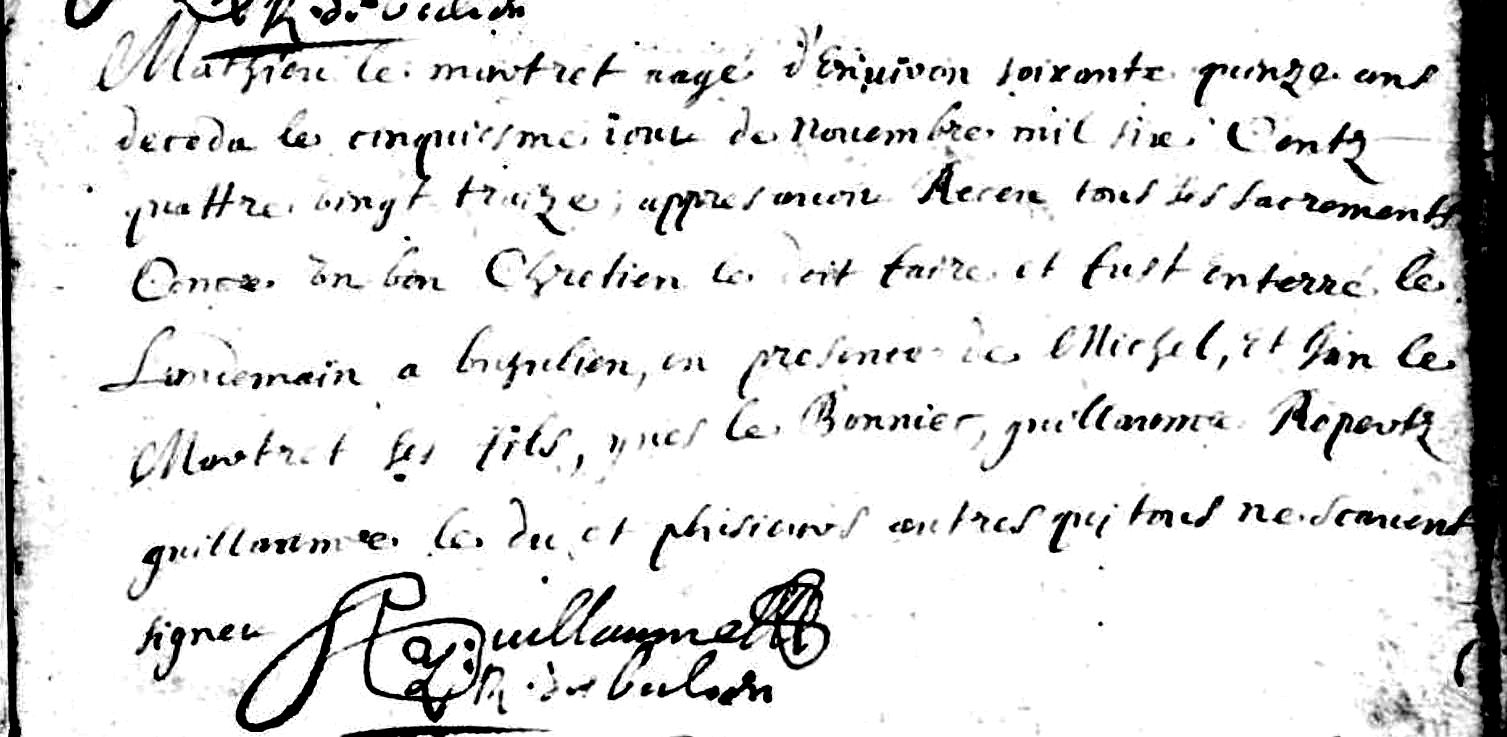 R. de bulien
Mathieu le montret aagé d'Enuiron soixante quinze ans
deceda le cinquiesme iour de Nouembre mil six Centz
quattre vingt traize, appres auoir Receu tous ses sacrements
Come un bon Chretien le doit faire et fust enterré le
Landemain a buhulien, en presence de Michel, et Jan le
Montret ses fils, yues le Bonniec, guillaume
guillaume le du et plusieurs autres qui tous ne scauent
signer Guillaume
R. de